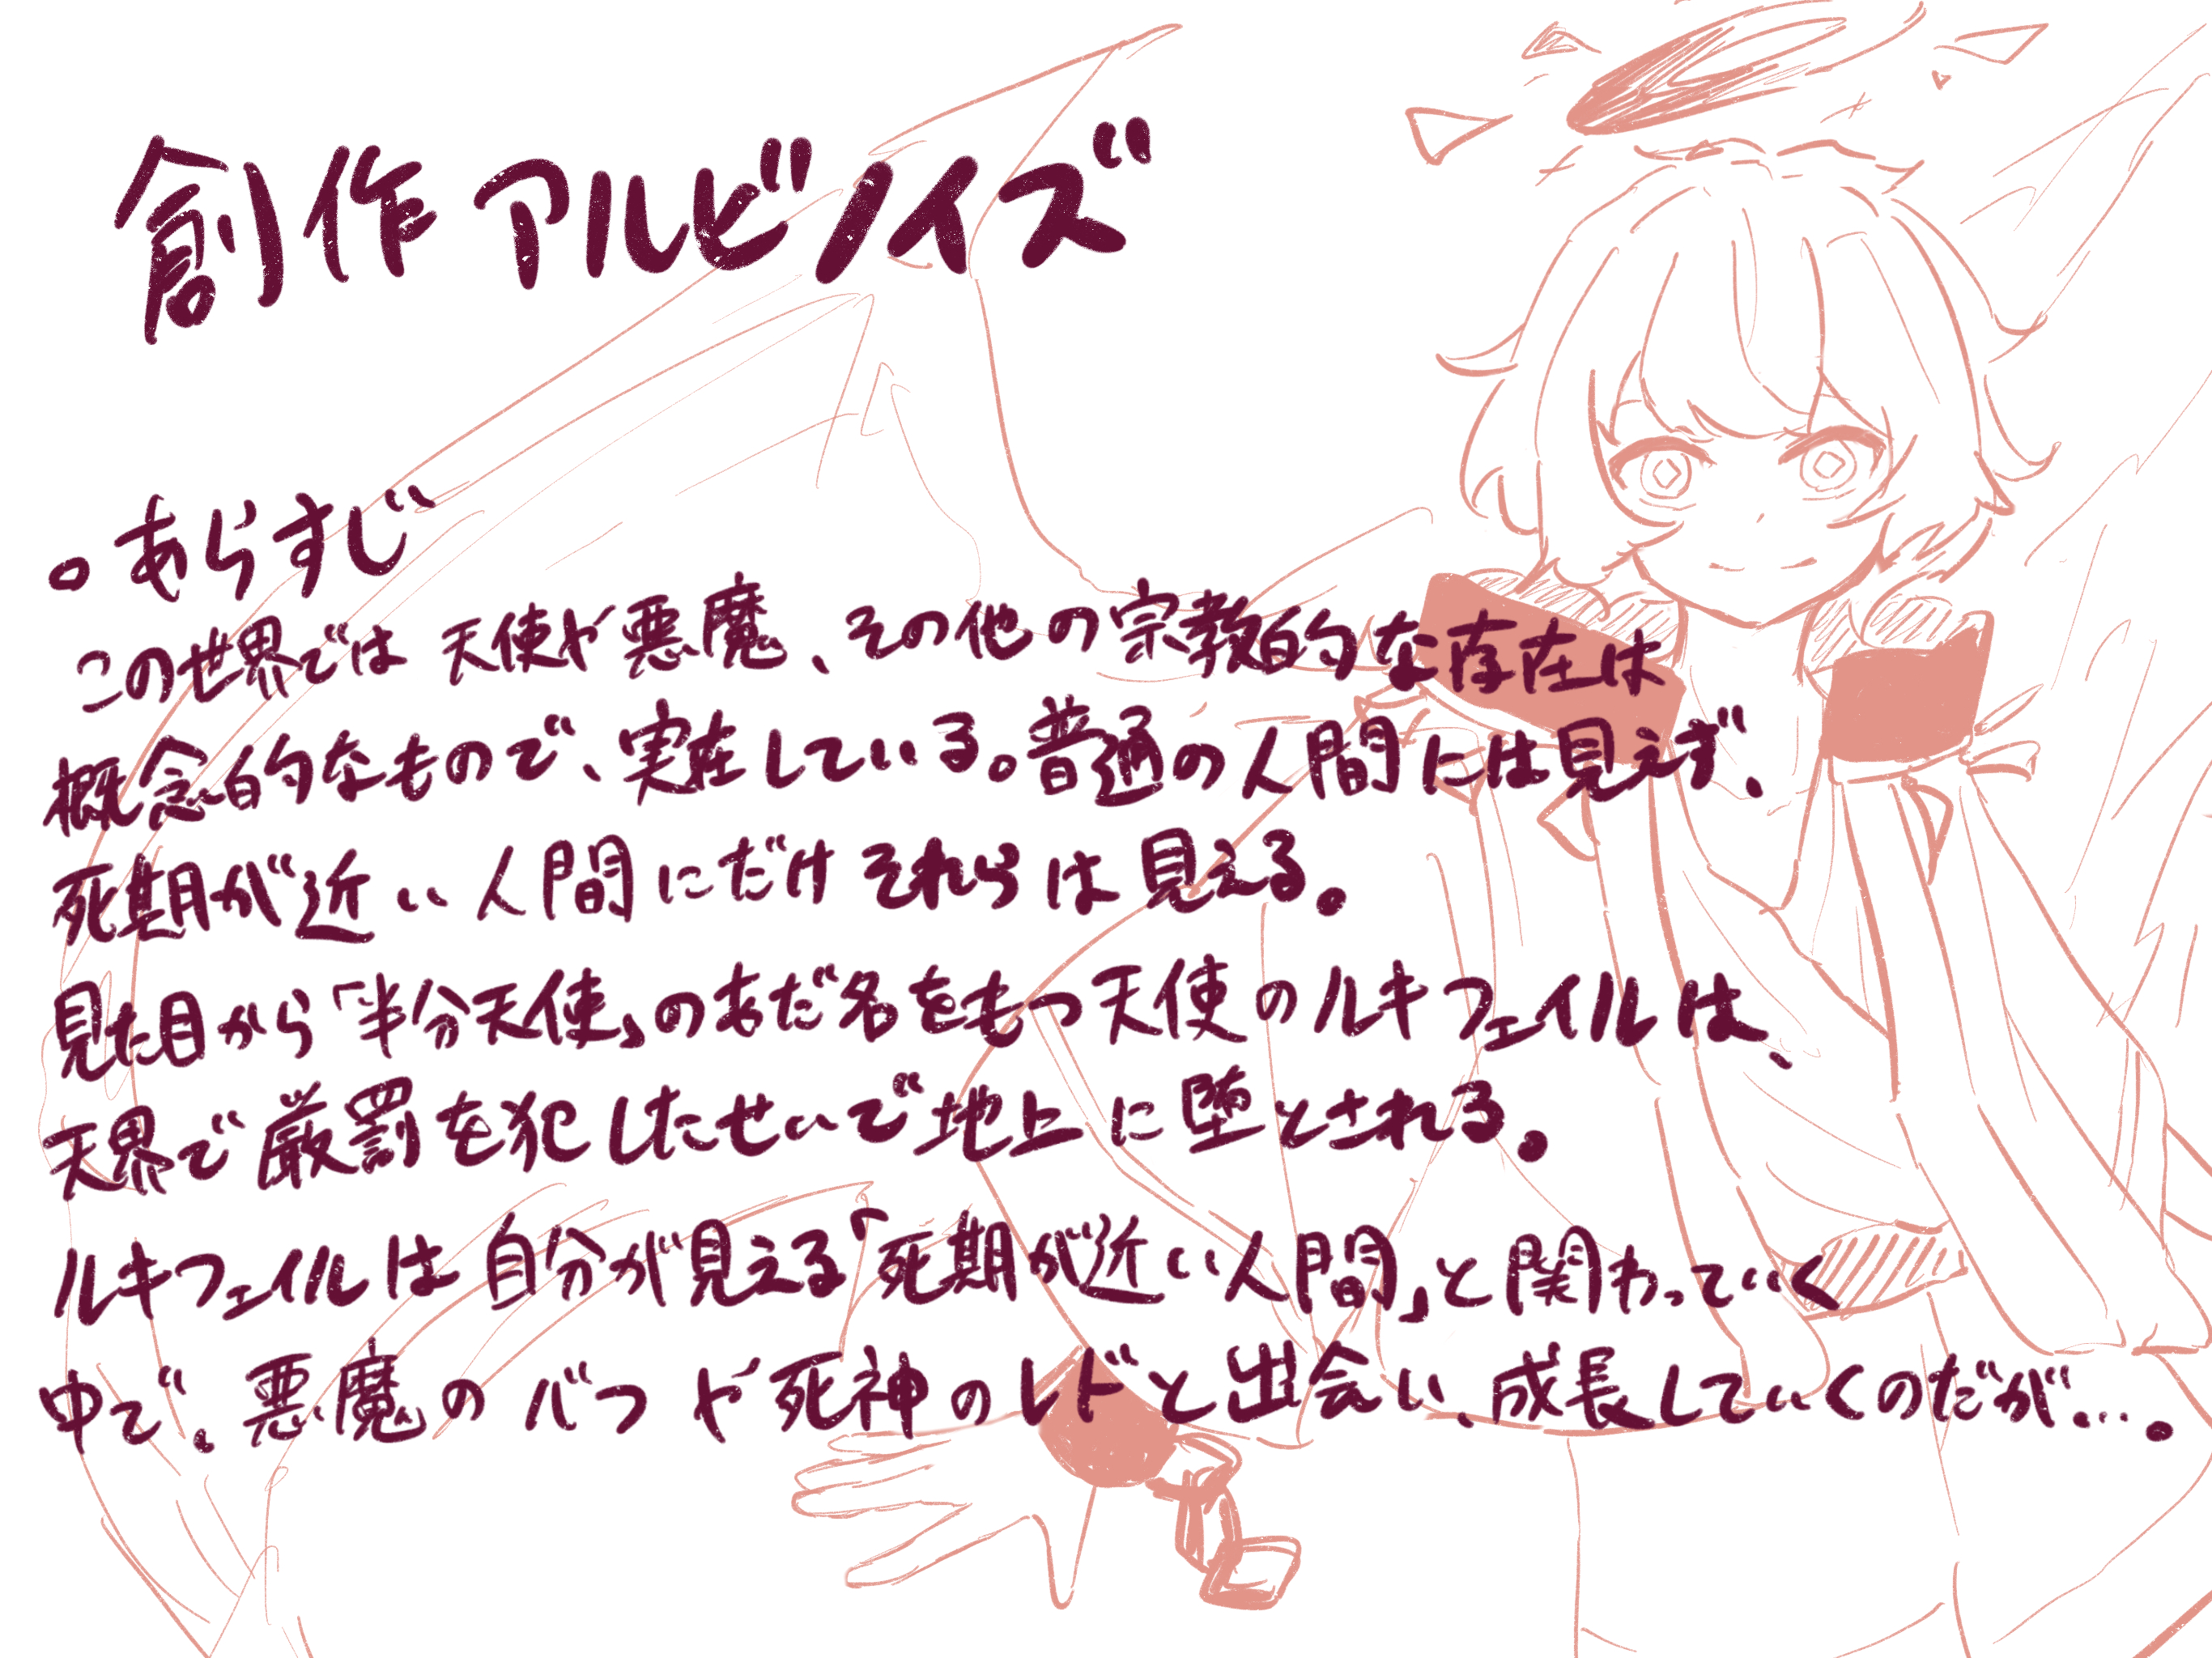 創作 アルビノイズ
。あらすじ
この世界では 天使や悪魔、その他の宗教的な存在は
概念的なもので、実在している。普通の人間には見えず、
死期が近い人間にだけそれらは見える。
見た目から「半分天使」のあだ名をもつ天使のルキフェイルは、
天界で厳罰を犯したせいで地上に堕とされる。
ルキフェイルは自分が見える「死期が近い人間」と関わっていく
中で、悪魔のバつや死神のレドと出会い、成長していくのだが…。